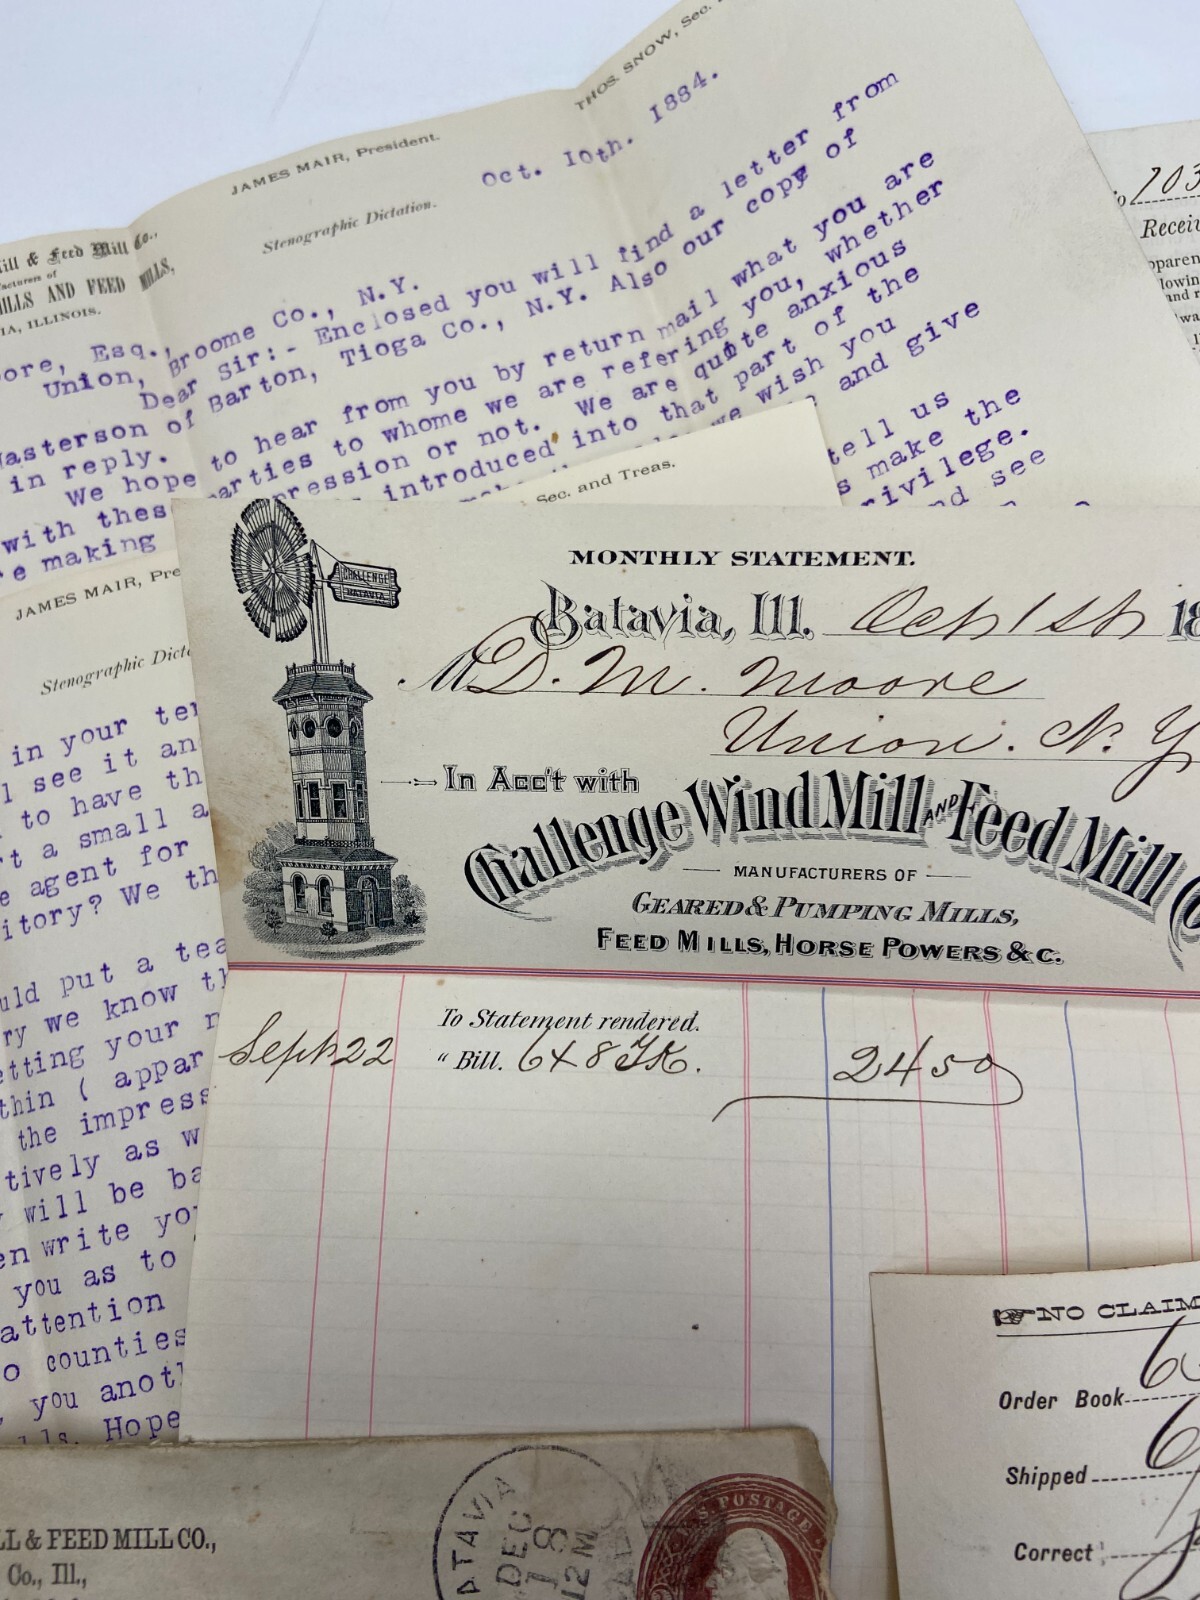 THOS. SNOW, Sec.
JAMES MAIR, President.
Oct. 10th. 1884.
Stenographic Dictation.
ill & Feed Mill Co.,
MILLS AND FEED MILLS,
IA, ILLINOIS.
ore, Esq.,
Union, Broome Co., N.Y.
Dear Sir:- Enclosed you will find a letter from
Masterson of Barton, Tioga Co., N.Y. Also our copy of
in reply.
We hope to hear from you by return mail what you are
with thes parties to whome we are refering you, whether
e making pression or not. We are quite anxious
introduced into that part of the
we wish you
and give
tell us
s make the
rivilege.
nd see
Sec. and Treas.
JAMES MAIR, Pre
Stenographic Dicta
in your ter
l see it an
to have th
rt a small a
e agent for
itory? We th
uld put a tea
ry we know th
etting your
thin ( appar
the impress
tively as w
will be ba
en write yo
you as to
attention
o counties
you anot
Hope
103
Receiv
pparen
lowin
and r
MONTHLY STATEMENT.
CHALLENGE
BATAVIA
Batavia, Ill. Oct 1st 18
M D. M. Moore
Union. N. Y
In Acc't with
Challenge Wind Mill AND Feed Mill
MANUFACTURERS OF
GEARED & PUMPING MILLS,
FEED MILLS, HORSE POWERS & C.
To Statement rendered.
Sept 22 " Bill. 6 x 8 TK. 24 50
NO CLAIM
Order Book
Shipped
Correct
LL & FEED MILL CO.,
Co., Ill.,
ATAVIA
DEC
18
12 M
ILL
S POSTAGE